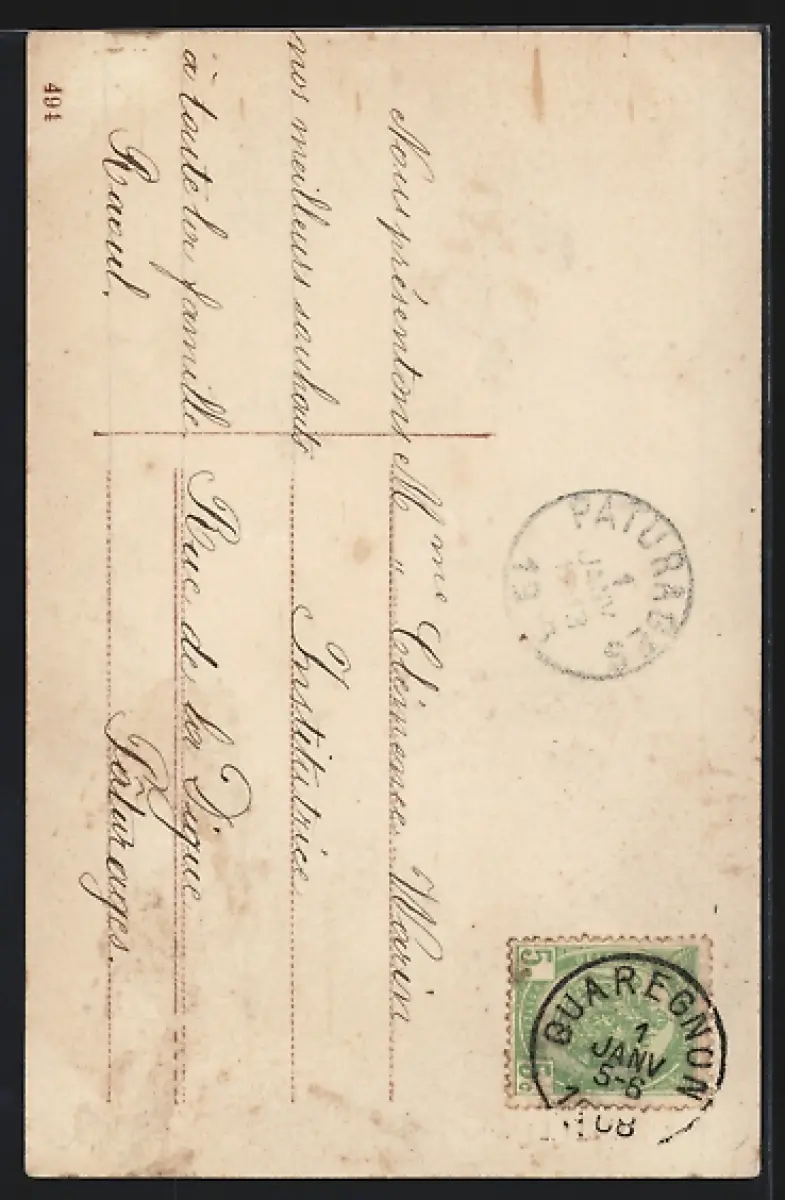 Nous présentons
nos meilleurs souhaits
à toute la famille
Raoul.
Mme Clémence Warin
Institutrice
Rue de la Digue
Pâturages.
PATURAGES
1
JANV
19
QUAREGNON
1
JANV
5-6
08
5
5c
494